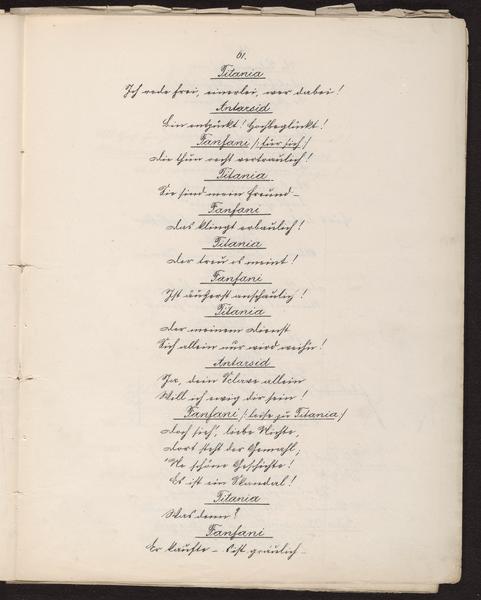 61.
Titania
Ich rede frei, einerlei, wer dabei!
Antarsid
Bin entzückt! Hochbeglückt!
Fanfani /: für sich :/
Die thun recht vertraulich!
Titania
Sie sind mein Freund –
Fanfani
Das klingt erbaulich!
Titania
Der treu es meint!
Fanfani
Ist äußerst anschaulich!
Titania
Der meinem Dienst
Sich allein nur wird weih'n!
Antarsid
Ja, dein Sclave allein
Will ich ewig dir sein!
Fanfani /: leise zu Titania :/
Doch sieh', liebe Nichte,
Dort steht der Gemahl;
'Ne schöne Geschichte!
Es ist ein Skandal!
Titania
Was denn?
Fanfani
Er kaufte – 's ist gräulich –